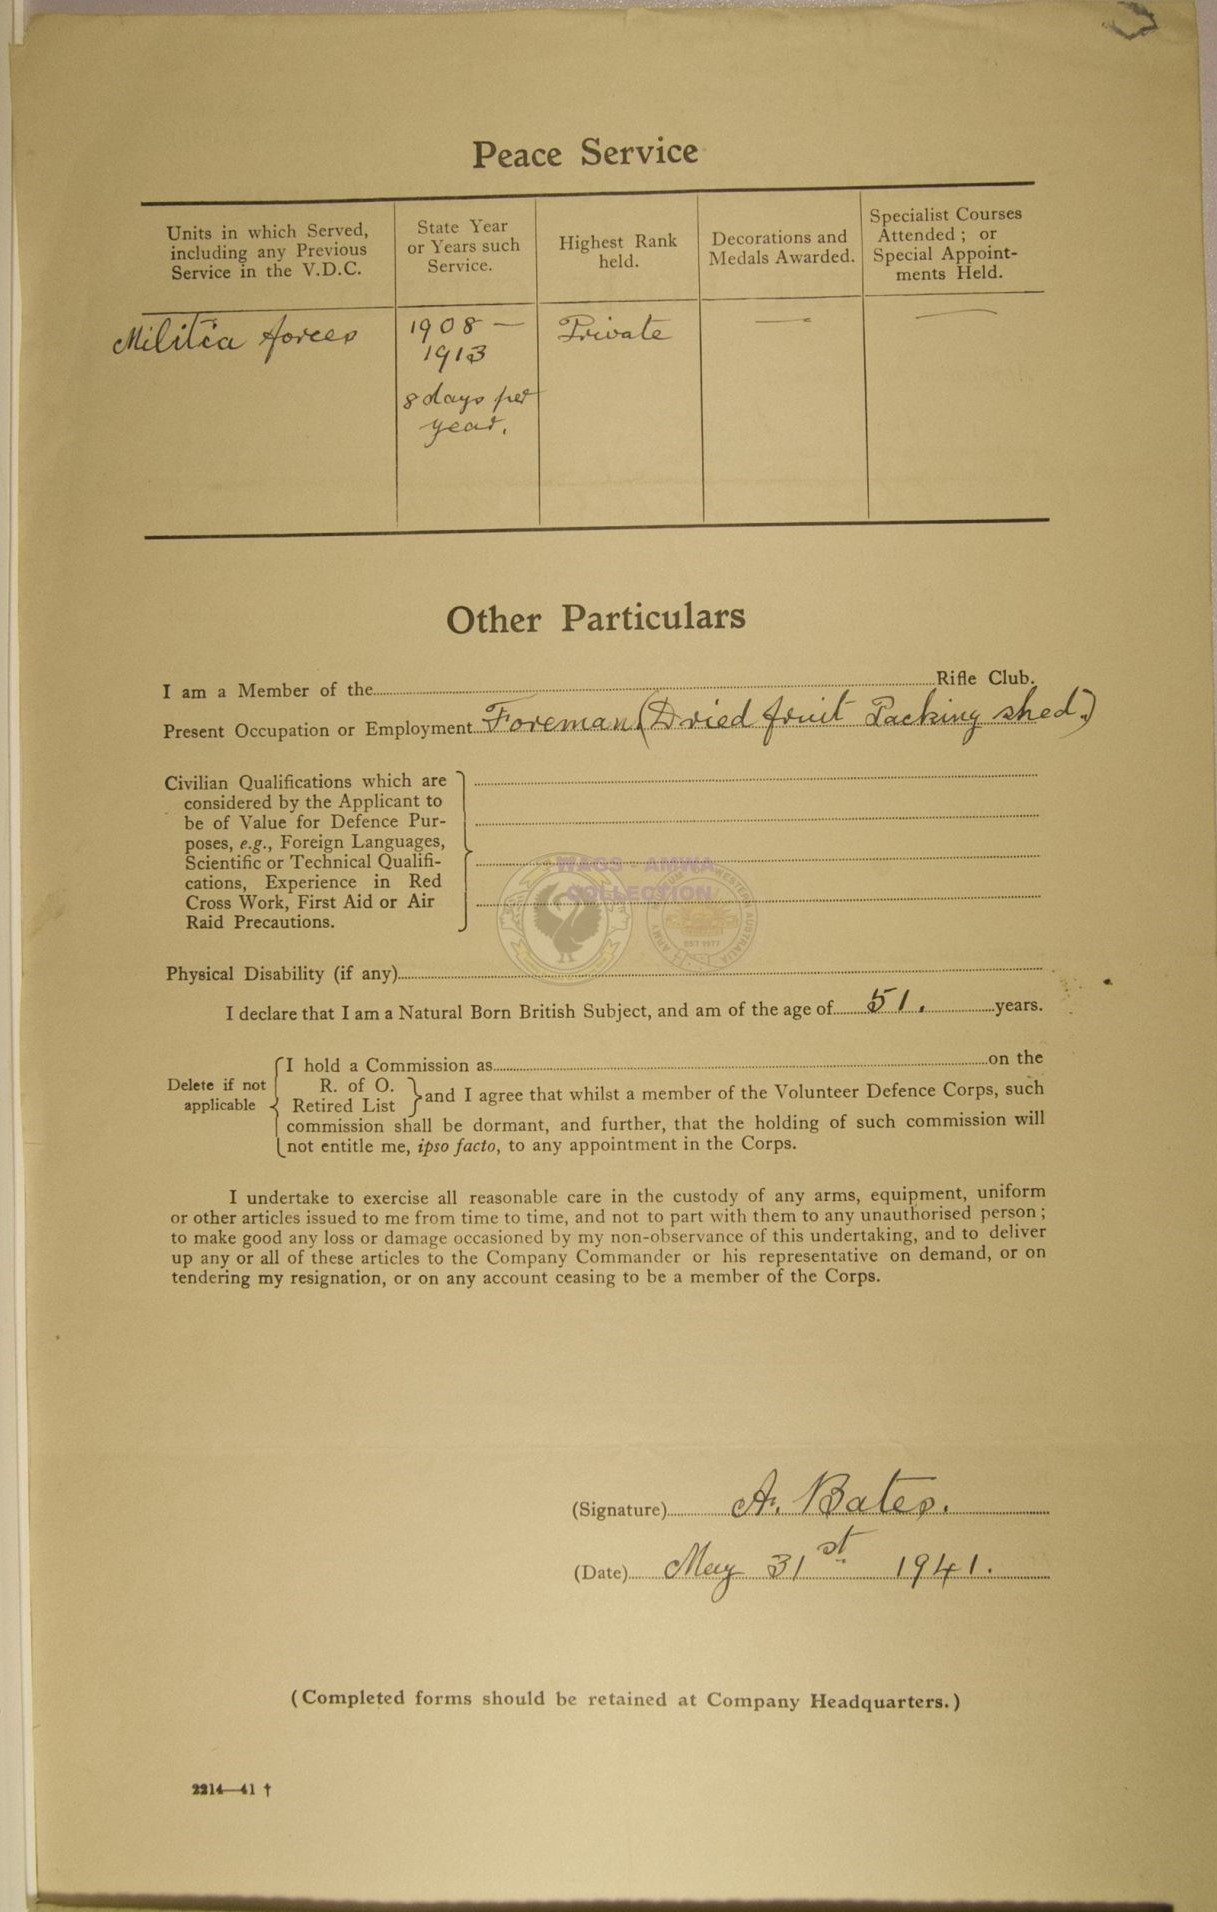 Peace Service
Units in which Served,
including any Previous
Service in the V.D.C.
State Year
or Years such
Service.
Highest Rank
held.
Decorations and
Medals Awarded.
Specialist Courses
Attended ; or
Special Appoint-
ments Held.
Militia forces
1908 —
1913
8 days per
year.
Private
—
—
Other Particulars
I am a Member of the Rifle Club.
Present Occupation or Employment Foreman (Dried fruit Packing shed.)
Civilian Qualifications which are
considered by the Applicant to
be of Value for Defence Pur-
poses, e.g., Foreign Languages,
Scientific or Technical Qualifi-
cations, Experience in Red
Cross Work, First Aid or Air
Raid Precautions.
WAGS - AMWA
COLLECTION
ARMY MUSEUM OF WESTERN AUSTRALIA
EST 1977
Physical Disability (if any)
I declare that I am a Natural Born British Subject, and am of the age of 51. years.
Delete if not
applicable
I hold a Commission as on the
R. of O.
Retired List
and I agree that whilst a member of the Volunteer Defence Corps, such
commission shall be dormant, and further, that the holding of such commission will
not entitle me, ipso facto, to any appointment in the Corps.
I undertake to exercise all reasonable care in the custody of any arms, equipment, uniform
or other articles issued to me from time to time, and not to part with them to any unauthorised person ;
to make good any loss or damage occasioned by my non-observance of this undertaking, and to deliver
up any or all of these articles to the Company Commander or his representative on demand, or on
tendering my resignation, or on any account ceasing to be a member of the Corps.
(Signature) A. Bates.
(Date) May 31st 1941.
(Completed forms should be retained at Company Headquarters.)
2214—41 †